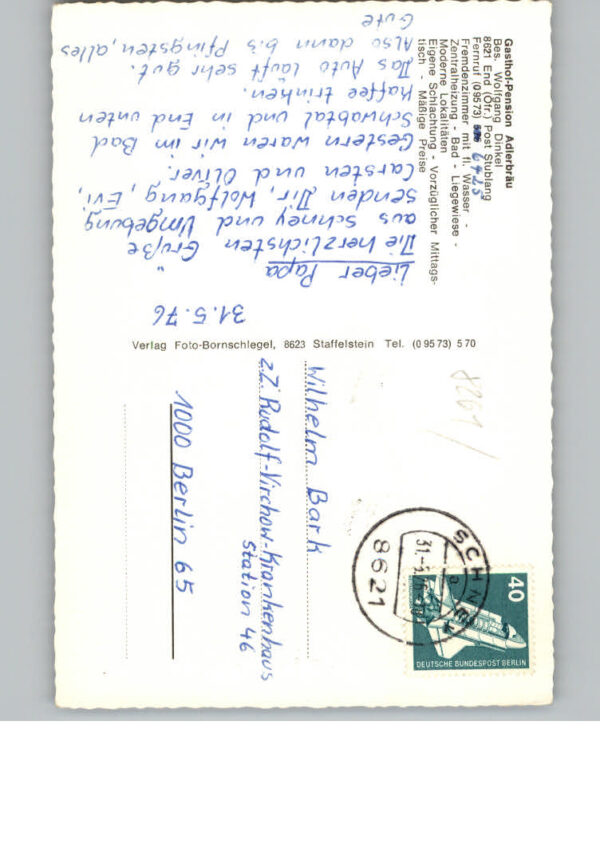 Gasthof-Pension Adlerbräu
Bes. Wolfgang Dinkel
8621 End (Ofr.) Post Stublang
Fernruf (0 95 73) 6425
Fremdenzimmer mit fl. Wasser -
Zentralheizung - Bad - Liegewiese -
Moderne Lokalitäten
Eigene Schlachtung - Vorzüglicher Mittags-
tisch - Mäßige Preise
31.5.76
Lieber Papa
Die herzlichsten Grüße
aus Schney und Umgebung
senden Dir, Wolfgang, Evi,
Carsten und Oliver.
Gestern waren wir im Bad
Schwabtal und in End unten
Kaffee trinken.
Das Auto läuft sehr gut.
Also dann bis Pfingsten, alles
Gute
Verlag Foto-Bornschlegel, 8623 Staffelstein Tel. (0 95 73) 5 70
Wilhelm Bark
zZ. Rudolf-Virchow-Krankenhaus
Station 46
1000 Berlin 65
8261
SCHNEY
31.-5.
a
8621
40
DEUTSCHE BUNDESPOST BERLIN